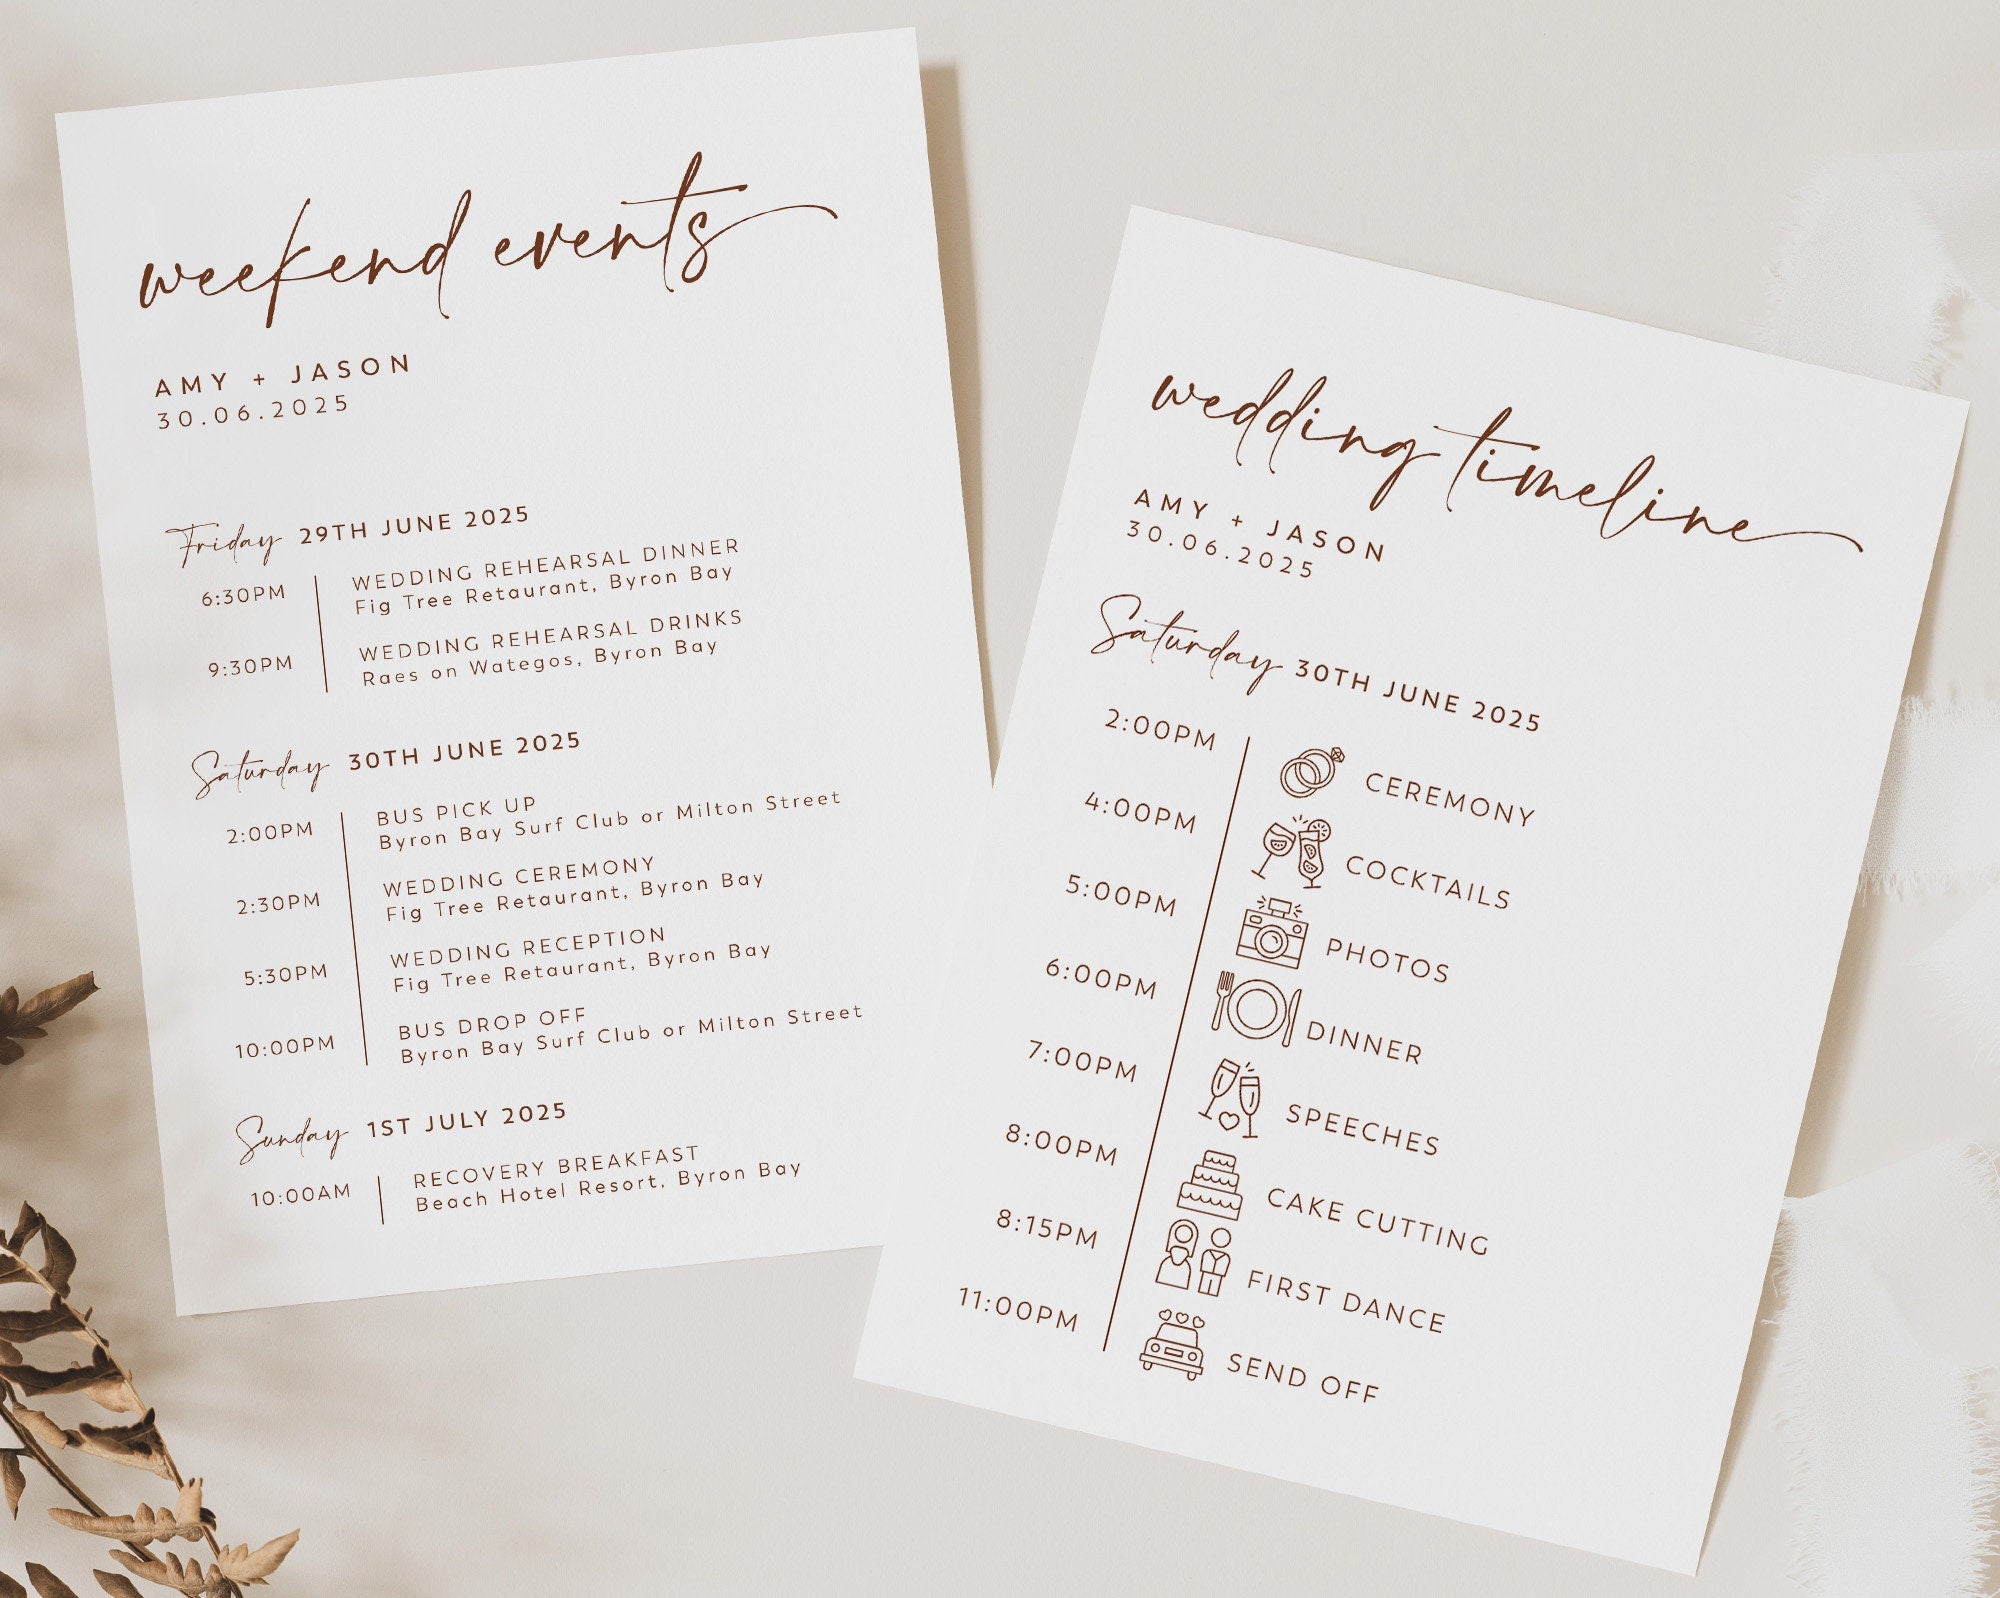 weekend events
AMY + JASON
30.06.2025
Friday 29TH JUNE 2025
6:30PM WEDDING REHEARSAL DINNER
Fig Tree Retaurant, Byron Bay
9:30PM WEDDING REHEARSAL DRINKS
Raes on Wategos, Byron Bay
Saturday 30TH JUNE 2025
2:00PM BUS PICK UP
Byron Bay Surf Club or Milton Street
2:30PM WEDDING CEREMONY
Fig Tree Retaurant, Byron Bay
5:30PM WEDDING RECEPTION
Fig Tree Retaurant, Byron Bay
10:00PM BUS DROP OFF
Byron Bay Surf Club or Milton Street
Sunday 1ST JULY 2025
10:00AM RECOVERY BREAKFAST
Beach Hotel Resort, Byron Bay
wedding timeline
AMY + JASON
30.06.2025
Saturday 30TH JUNE 2025
2:00PM CEREMONY
4:00PM COCKTAILS
5:00PM PHOTOS
6:00PM DINNER
7:00PM SPEECHES
8:00PM CAKE CUTTING
8:15PM FIRST DANCE
11:00PM SEND OFF